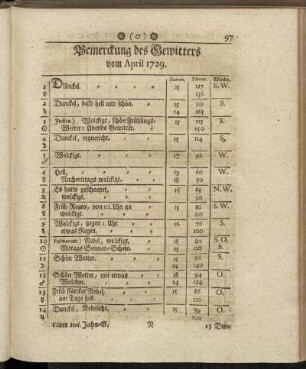 (0) 97
Bemerckung des Gewitters
vom April 1729.
Barom. Therm. Winde.
1 Dunckel. 15 127 S. W.
136
2 Dunckel, bald hell und schön. 15 110 S.
14 165
3 Wolckigt, schön Frühlings- 15 115
Wetter: Abends Gewitter. 150
4 Dunckel, regnericht. 15 114 S.
5 Wolckigt. 17 92 W.
6 Hell, 19 60 W.
Nachmittags wolckigt. 90
7 Es hatte geschneyet, 16 65 N. W.
wolckigt. 90
8 Früh Regen, von 10. Uhr an 15 82 W.
wolckigt. 80
9 Wolckigt, gegen 1. Uhr 16 76 S.
etwas Regen. 100
10 Palmarum. Nebel, wolckigt, 15 95 S. O.
Mittags Sonnen-Schein. 15 108 S.
11 Schön Wetter. 15
14 140
12 Schön Wetter, mit etwas 14 94 O.
Wolcken. 14 134
13 Früh starcker Nebel, 15 86 O.
am Tage hell. 130
14 Dunckel, Nebelicht. 15 89 O.
100
Jahr-G. N 15